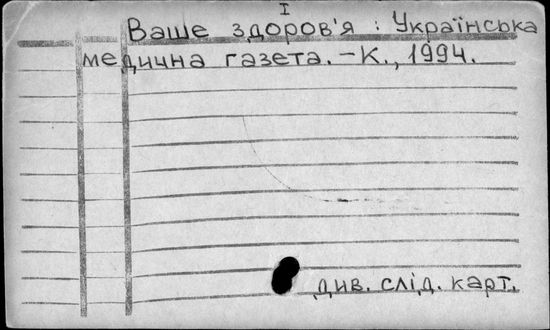 I
Ваше здоров'я : Українська
медична газета. – К., 1994.
див. слід. карт.